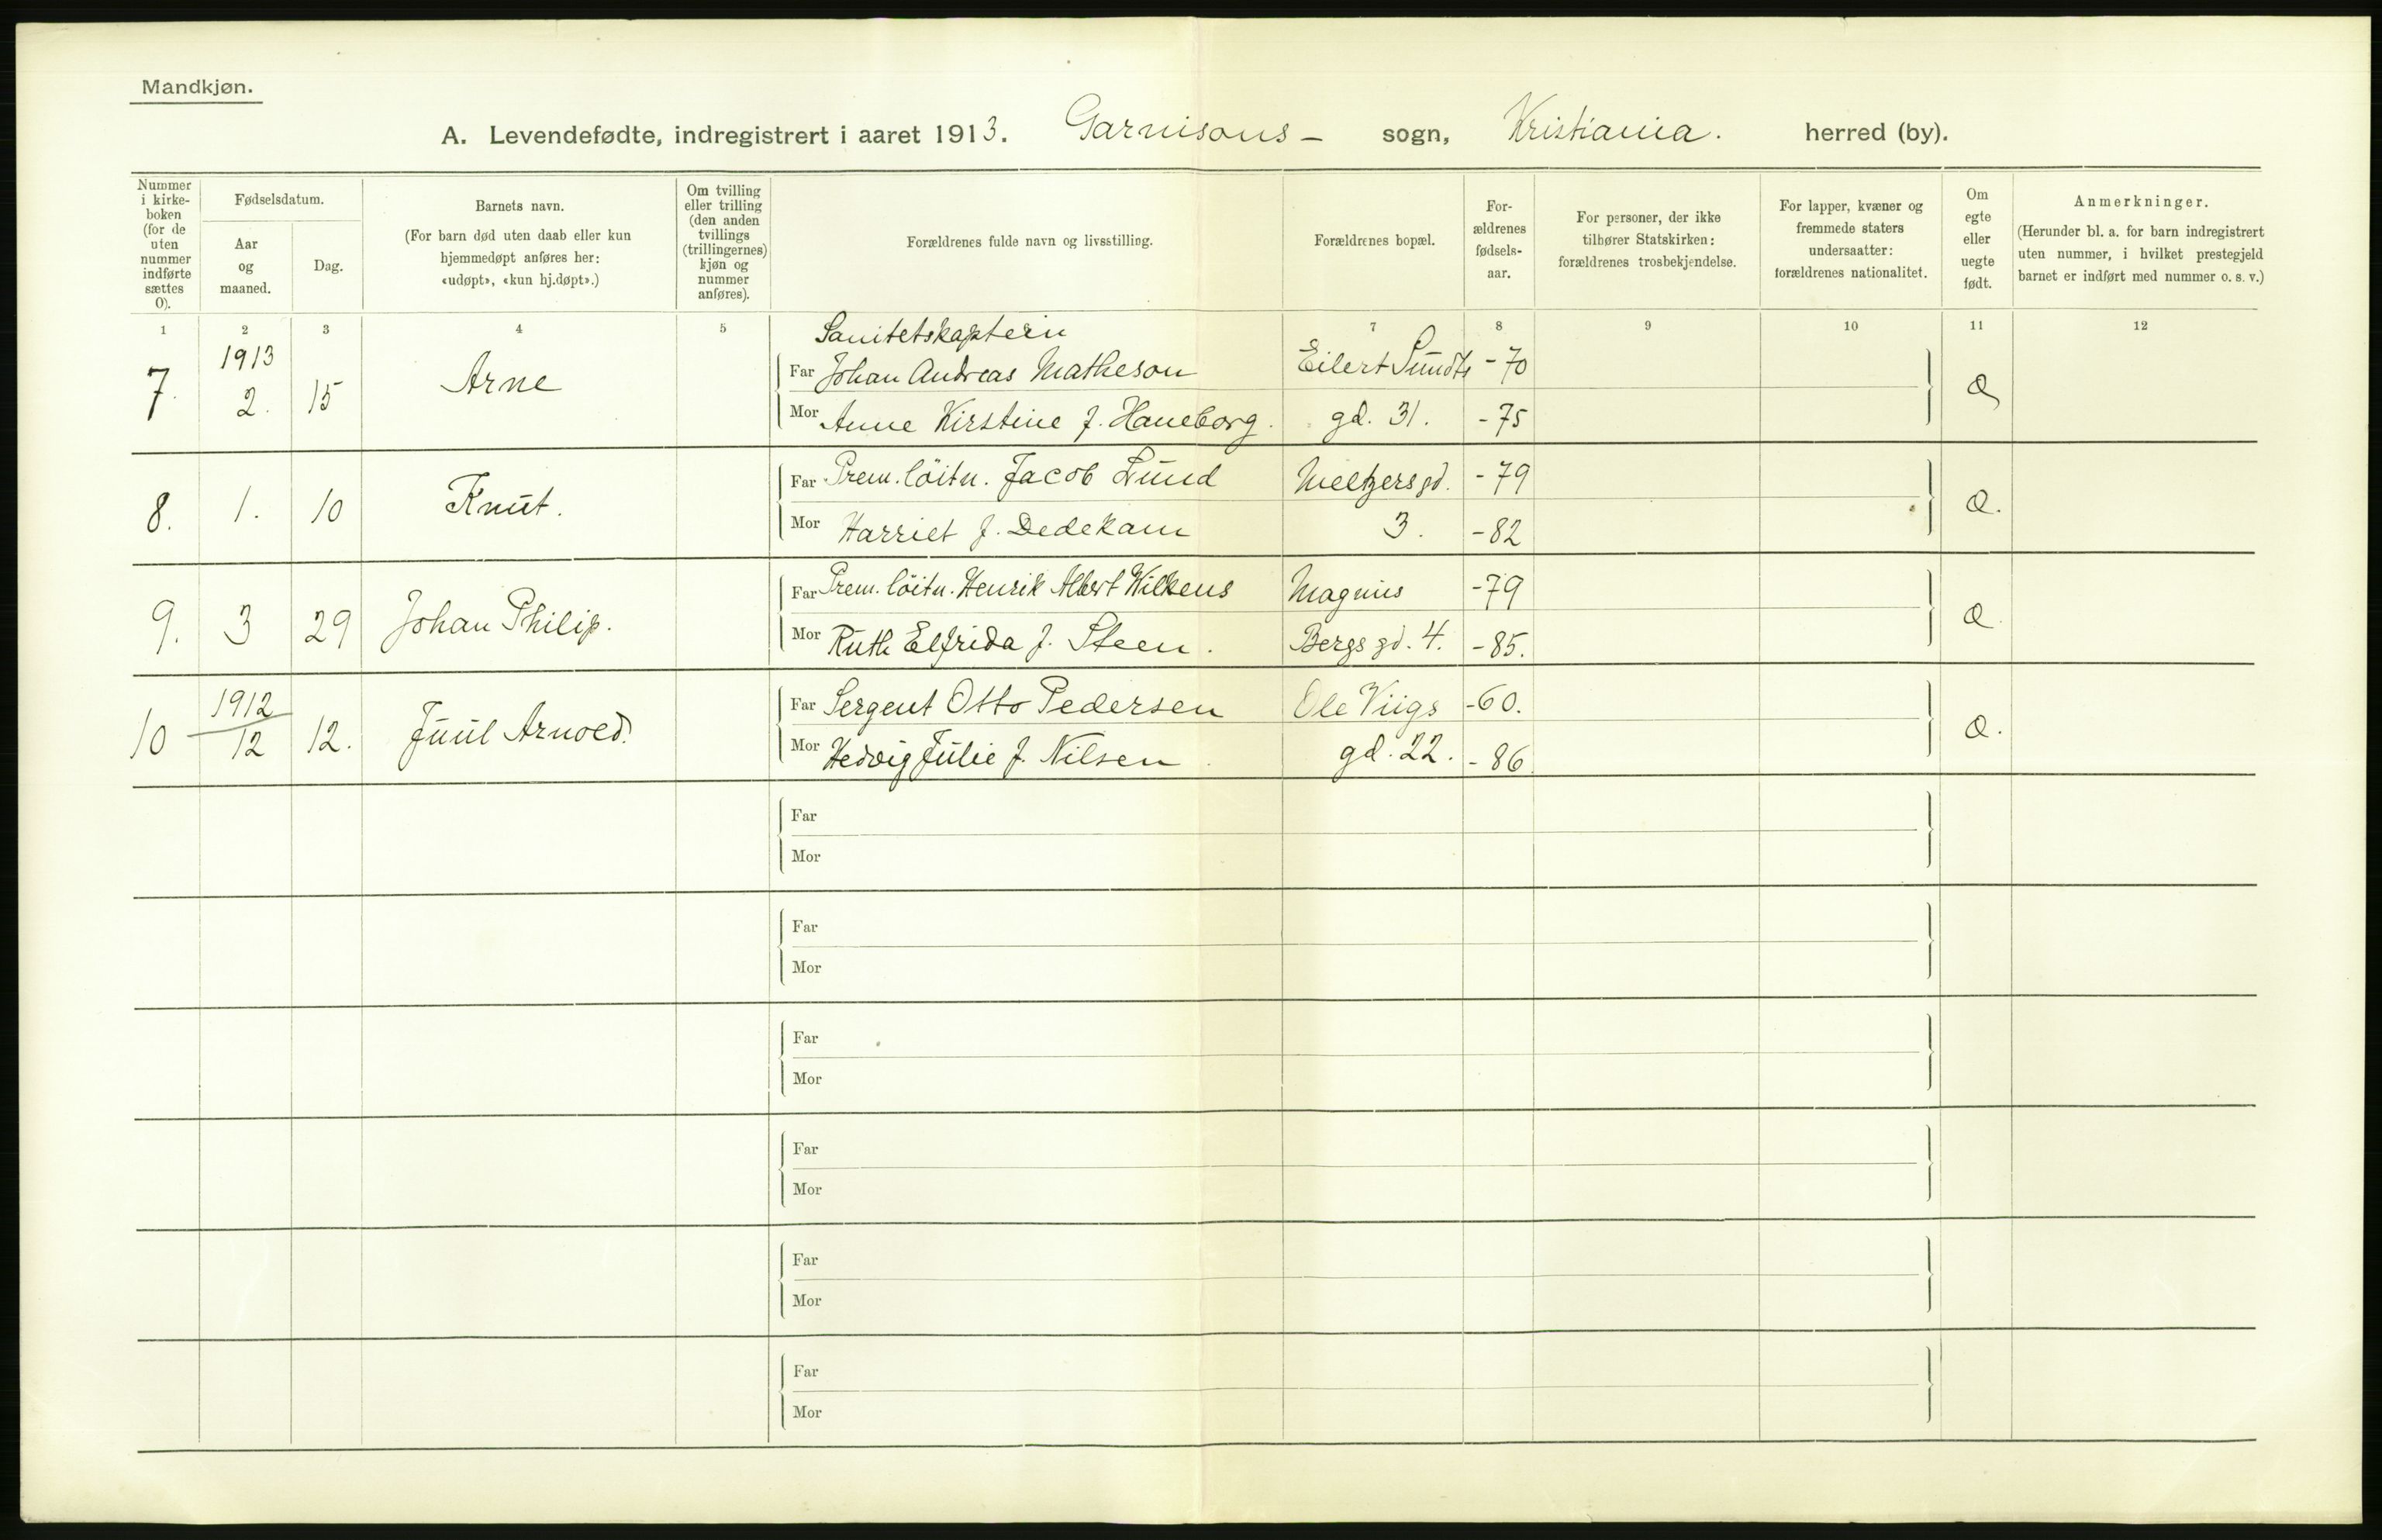 Mandkjøn.
A. Levendefødte, indregistrert i aaret 1913. Garnisons- sogn, Kristiania. herred (by).
Nummer
i kirke-
boken
(for de
uten
nummer
indførte
sættes
0).
Fødselsdatum.
Aar
og
maaned.
Dag.
Barnets navn.
(For barn død uten daab eller kun
hjemmedøpt anføres her:
«udøpt», «kun hj.døpt».)
Om tvilling
eller trilling
(den anden
tvillings
(trillingernes)
kjøn og
nummer
anføres).
Forældrenes fulde navn og livsstilling.
Forældrenes bopæl.
For-
ældrenes
fødsels-
aar.
For personer, der ikke
tilhører Statskirken:
forældrenes trosbekjendelse.
For lapper, kvæner og
fremmede staters
undersaatter:
forældrenes nationalitet.
Om
egte
eller
uegte
født.
Anmerkninger.
(Herunder bl. a. for barn indregistrert
uten nummer, i hvilket prestegjeld
barnet er indført med nummer o. s. v.)
1 2 3 4 5 7 8 9 10 11 12
Sanitetskaptein
1913
7. 2. 15 Arne Far Johan Andreas Matheson Eilert Sundts -70 Æ
Mor Anne Kirstine f. Haneborg. gd. 31. -75
8. 1. 10 Knut. Far Prem. löitn. Jacob Lund Meltzersgd. -79 Æ.
Mor Harriet f. Dedekam 3. -82
9. 3 29 Johan Philip. Far Prem. löitn. Henrik Albert Wilkens Magnus -79 Æ
Mor Ruth Elfrida f. Steen. Bergs gd. 4. -85.
1912
10 12 12. Juul Arnold. Far Sergent Otto Pedersen Ole Viigs -60. Æ.
Mor Hedvig Julie f. Nilsen gd. 22. -86
Far
Mor
Far
Mor
Far
Mor
Far
Mor
Far
Mor
Far
Mor